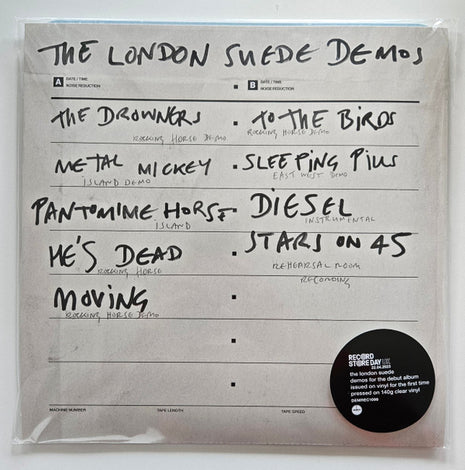 THE LONDON SUEDE DEMOS
A DATE / TIME
NOISE REDUCTION
B DATE / TIME
NOISE REDUCTION
THE DROWNERS
ROCKING HORSE DEMO
METAL MICKEY
ISLAND DEMO
PANTOMIME HORSE
ISLAND
HE'S DEAD
ROCKING HORSE
MOVING
ROCKING HORSE DEMO
TO THE BIRDS
ROCKING HORSE DEMO
SLEEPING PILLS
EAST WEST DEMO
DIESEL
INSTRUMENTAL
STARS ON 45
REHEARSAL ROOM
RECORDING
MACHINE NUMBER
TAPE LENGTH
TAPE SPEED
RECORD
STORE DAY
22.04.2023
the london suede
demos for the debut album
issued on vinyl for the first time
pressed on 140g clear vinyl
DEMREC1099